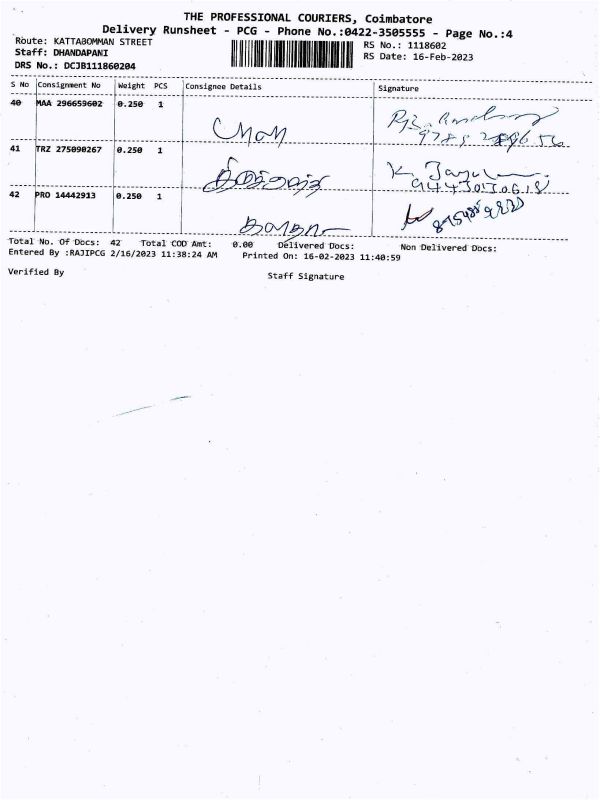 THE PROFESSIONAL COURIERS, Coimbatore
Delivery Runsheet - PCG - Phone No.:0422-3505555 - Page No.:4
Route: KATTABOMMAN STREET
RS No.: 1118602
Staff: DHANDAPANI
RS Date: 16-Feb-2023
DRS No.: DCJB111860204
S No Consignment No Weight PCS Consignee Details Signature
40 MAA 296659602 0.250 1
41 TRZ 275090267 0.250 1
K.
9443030618
42 PRO 14442913 0.250 1
Total No. Of Docs: 42 Total COD Amt: 0.00 Delivered Docs: Non Delivered Docs:
Entered By :RAJIPCG 2/16/2023 11:38:24 AM Printed On: 16-02-2023 11:40:59
Verified By
Staff Signature